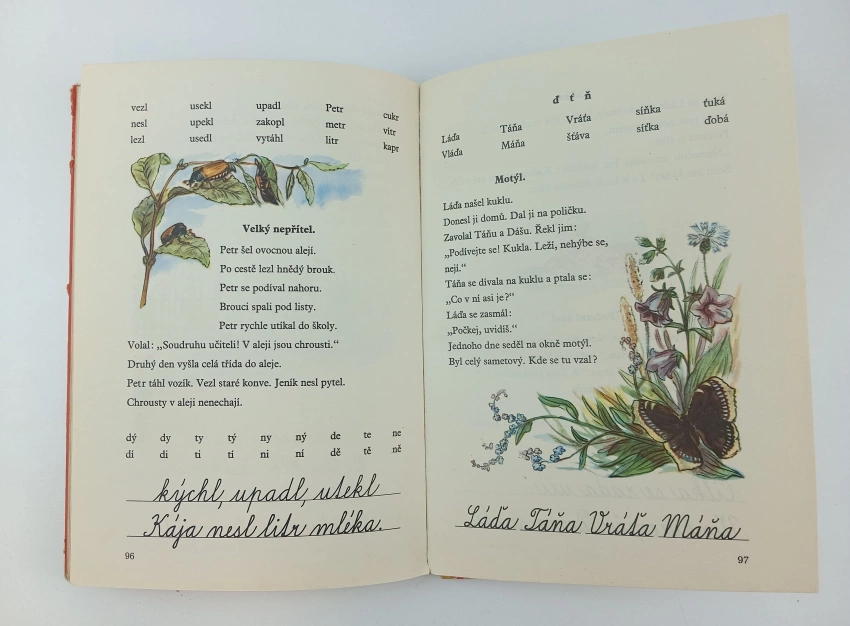 vezl usekl upadl Petr cukr
nesl upekl zakopl metr vítr
lezl usedl vytáhl litr kapr
Velký nepřítel.
Petr šel ovocnou alejí.
Po cestě lezl hnědý brouk.
Petr se podíval nahoru.
Brouci spali pod listy.
Petr rychle utíkal do školy.
Volal: „Soudruhu učiteli! V aleji jsou chrousti.“
Druhý den vyšla celá třída do aleje.
Petr táhl vozík. Vezl staré konve. Jeník nesl pytel.
Chrousty v aleji nenechají.
dý dy ty tý ny ný de te ne
dí di ti tí ni ní dě tě ně
kýchl, upadl, utekl
Kája nesl litr mléka.
96
ď ť ň
Láďa Táňa Vráťa síňka ťuká
Vláďa Máňa šťáva síťka ďobá
Motýl.
Láďa našel kuklu.
Donesl ji domů. Dal ji na poličku.
Zavolal Táňu a Dášu. Řekl jim:
„Podívejte se! Kukla. Leží, nehýbe se,
nejí.“
Táňa se dívala na kuklu a ptala se:
„Co v ní asi je?“
Láďa se zasmál:
„Počkej, uvidíš.“
Jednoho dne seděl na okně motýl.
Byl celý sametový. Kde se tu vzal?
Láďa Táňa Vráťa Máňa
97